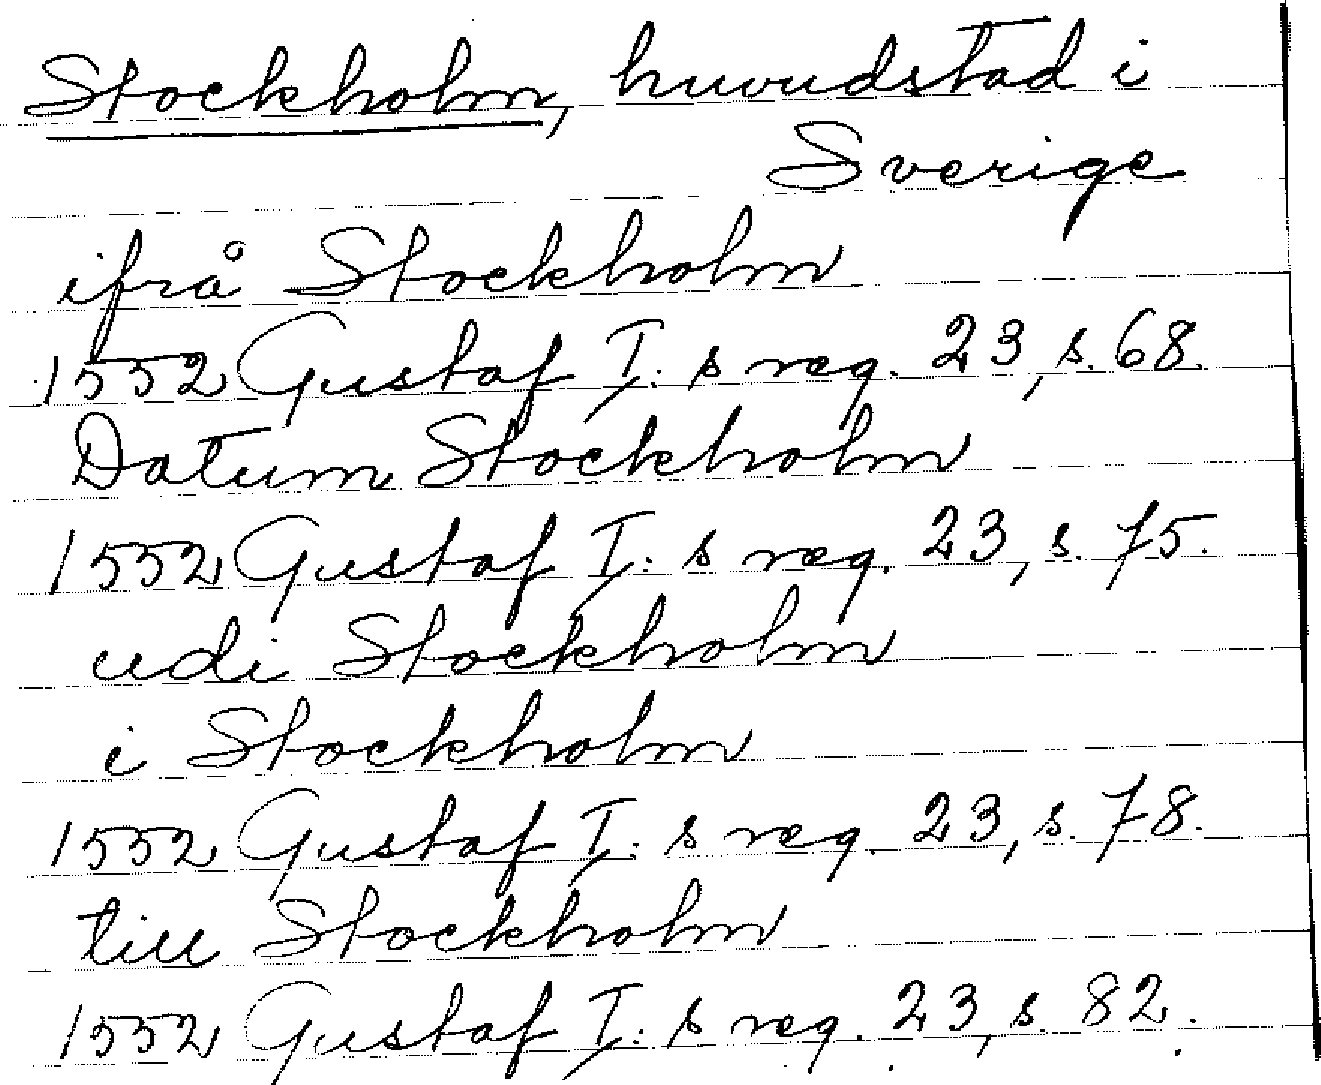 Stockholm, huvudstad i
Sverige
ifrå Stockholm
1552 Gustaf I: s reg. 23, s. 68.
Datum Stockholm
1552 Gustaf I: s reg. 23, s. 75.
udi Stockholm
i Stockholm
1552 Gustaf I: s reg. 23, s. 78.
till Stockholm
1552 Gustaf I: s reg. 23, s. 82.